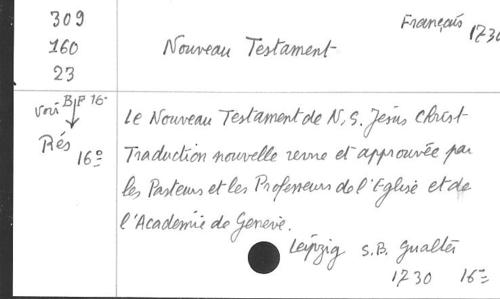 309
160
23
Français 1730
Nouveau Testament
voir BP 16-
Rés
16º
Le Nouveau Testament de N, S. Jésus Christ-
Traduction nouvelle revue et approuvée par
les Pasteurs et les Professeurs de l'Eglise et de
l'Academie de Geneve.
Leipzig S.B. Gualter
1730 16º